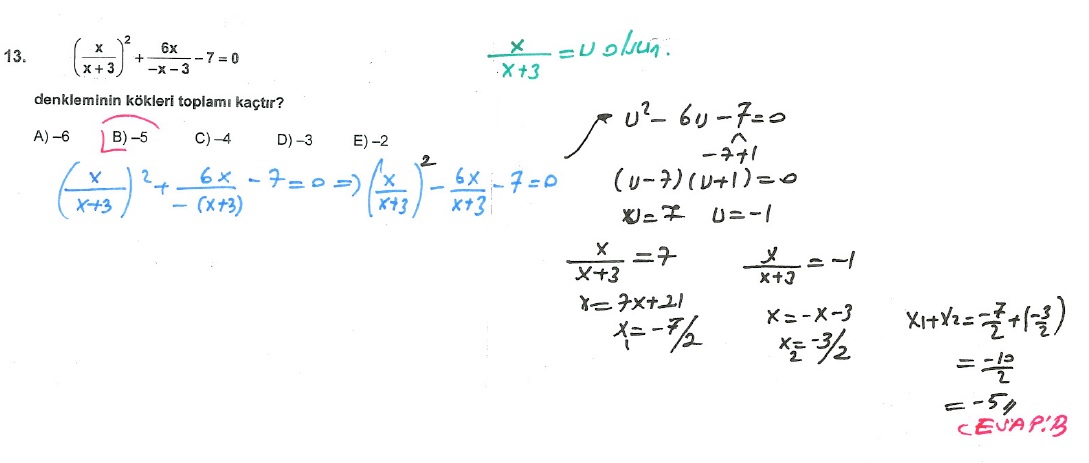 13. (x/(x+3))² + 6x/(−x−3) − 7 = 0
denkleminin kökleri toplamı kaçtır?
A) –6 B) –5 C) –4 D) –3 E) –2
(x/(x+3))² + 6x/(−(x+3)) − 7 = 0 ⇒ (x/(x+3))² − 6x/(x+3) − 7 = 0
x/(x+3) = u olsun.
u² − 6u − 7 = 0
−7 +1
(u−7)(u+1) = 0
u = 7 u = −1
x/(x+3) = 7 x/(x+3) = −1
x = 7x+21 x = −x−3
x₁ = −7/2 x₂ = −3/2
x₁+x₂ = −7/2 + (−3/2)
= −10/2
= −5//
CEVAP:B